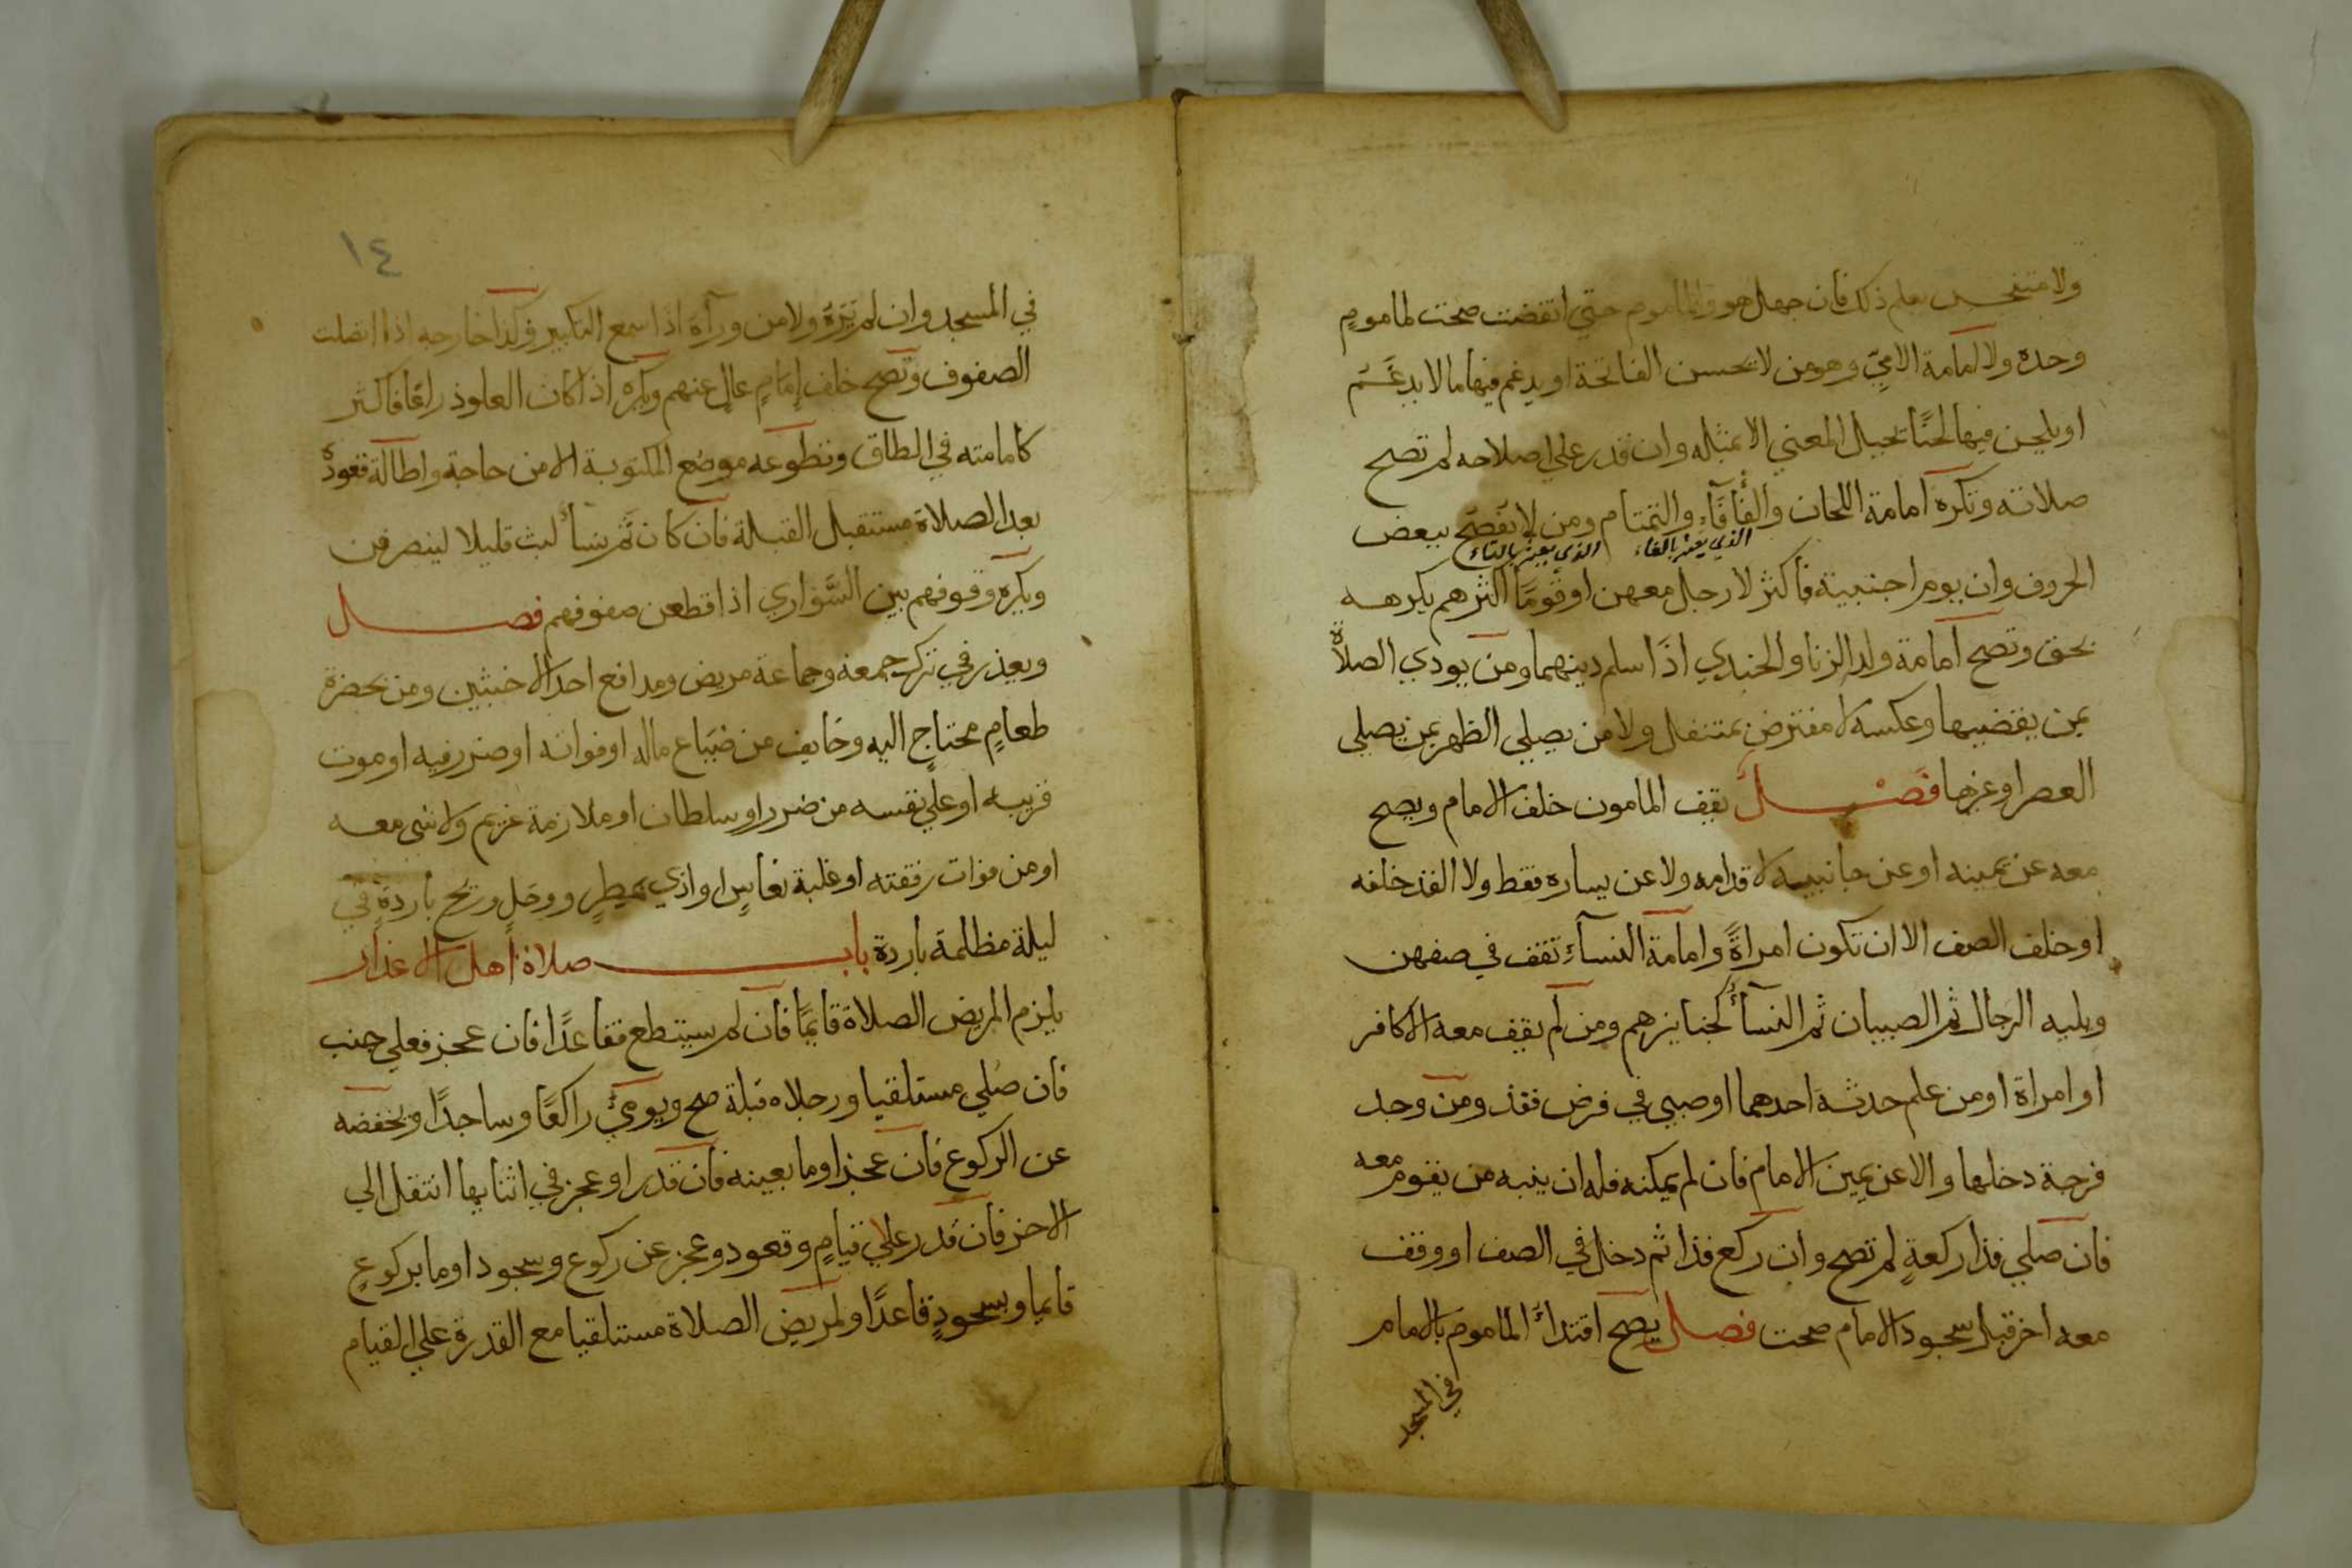 ولا متنجس يعلم ذلك فان جهل هو والماموم حتي انقضت صحت لماموم
وحده ولا امامة الامي وهو من لا يحسن الفاتحة او يدغم فيها ما لا يدغم
او يلحن فيها لحنا يحيل المعني الا بمثله وان قدر علي اصلاحه لم تصح
صلاته وتكره امامة اللحان والفأفاء والتمتام ومن لا يفصح ببعض
الذي يعيد بالفاء الذي يعيد بالتاء
الحروف وان يوم اجنبية فاكثر لا رجل معهن او قوما اكثرهم يكرهه
بحق وتصح امامة ولد الزنا والجندي اذا سلم دينهما ومن يودي الصلاة
بمن يقضيها وعكسه لا مفترض بمتنفل ولا من يصلي الظهر بمن يصلي
العصر او غيرها فصل يقف المامون خلف الامام ويصح
معه عن يمينه او عن جانبيه لا قدامه ولا عن يساره فقط ولا الفذ خلفه
او خلف الصف الا ان تكون امراة وامامة النساء تقف في صفهن
ويليه الرجال ثم الصبيان ثم النساء كجنايزهم ومن لم يقف معه الا كافر
او امراة او من علم حدثه احدهما او صبي في فرض ففذ ومن وجد
فرجة دخلها والا عن يمين الامام فان لم يمكنه فله ان ينبه من يقوم معه
فان صلي فذا ركعة لم تصح وان ركع فذا ثم دخل في الصف او وقف
معه اخر قبل سجود الامام صحت فصل يصح اقتداء الماموم بالامام
في المسجد
١٤
في المسجد وان لم يره ولا من وراه اذا سمع التكبير وكذا خارجه اذا اتصلت
الصفوف وتصح خلف امام عال عنهم ويكره اذا كان العلو ذراعا فاكثر
كامامته في الطاق وتطوعه موضع المكتوبة الا من حاجة واطالة قعوده
بعد الصلاة مستقبل القبلة فان كان ثم نساء لبث قليلا لينصرفن
ويكره وقوفهم بين السواري اذا قطعن صفوفهم فصل
ويعذر في ترك جمعة وجماعة مريض ومدافع احد الاخبثين ومن بحضرة
طعام محتاج اليه وخايف من ضياع ماله او فواته او ضرر فيه او موت
قريبه او علي نفسه من ضرر او سلطان او ملازمة غريم ولا شي معه
او من فوات رفقته او غلبة نعاس او اذي بمطر ووحل وريح باردة في
ليلة مظلمة باردة باب صلاة اهل الاعذار
يلزم المريض الصلاة قايما فان لم يستطع فقاعدا فان عجز فعلي جنب
فان صلي مستلقيا ورجلاه قبلة صح ويومي راكعا وساجدا ويخفضه
عن الركوع فان عجز اوما بعينه فان قدر او عجز في اثنايها انتقل الي
الاخر فان قدر علي قيام وقعود وعجز عن ركوع وسجود اوما بركوع
قايما وبسجود قاعدا ولمريض الصلاة مستلقيا مع القدرة علي القيام